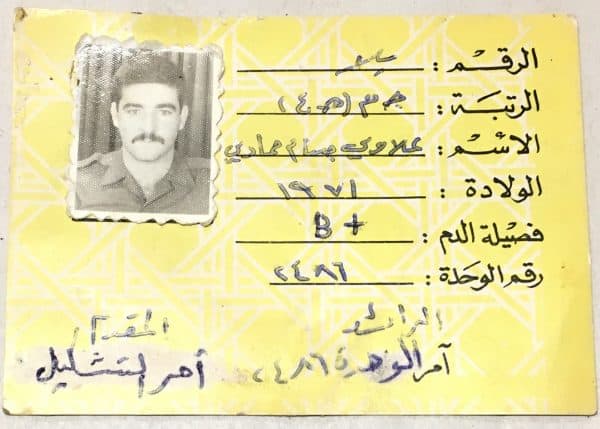 الرقم :
الرتبة : ج م (هـ ٤)
الاسم : علاوي جسام حمادي
الولادة : ١٩٧١
فصيلة الدم : B +
رقم الوحدة : ٢٤٨٦
الرائد
آمر الوحدة ٢٤٨٦
المقدم
آمر التشكيل